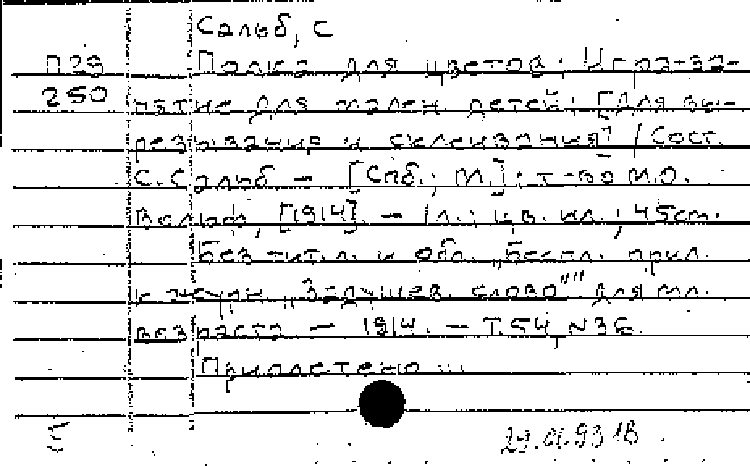 Сальб, С
П23 Полка для цветов: Игра-за-
250 нятие для мален детей: [Для вы-
резывания и склеивания] / Сост.
С. Сальб. — [Спб.; М.]: т-во М.О.
Вольф, [1914]. — 1л.: цв. ил.; 45см.
Без тит. л. и обл. „Беспл. прил.
к журн „Задушев. слово"" для мл.
возраста — 1914. — Т.54, N36.
Приплетено ...
29.01.93 1В